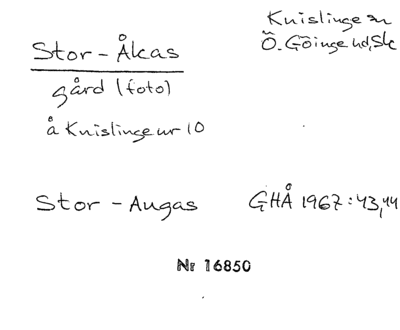 Stor-Åkas
gård (foto)
å Knislinge nr 10
Knislinge sn
Ö. Göinge hd, Sk
Stor-Augas
GHÅ 1967:43,44
Nr 16850